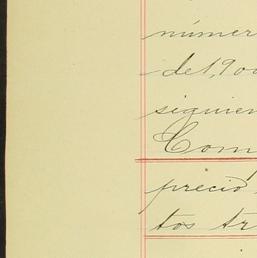 númer
de 1,90
siguien
Com
precio
tos tr